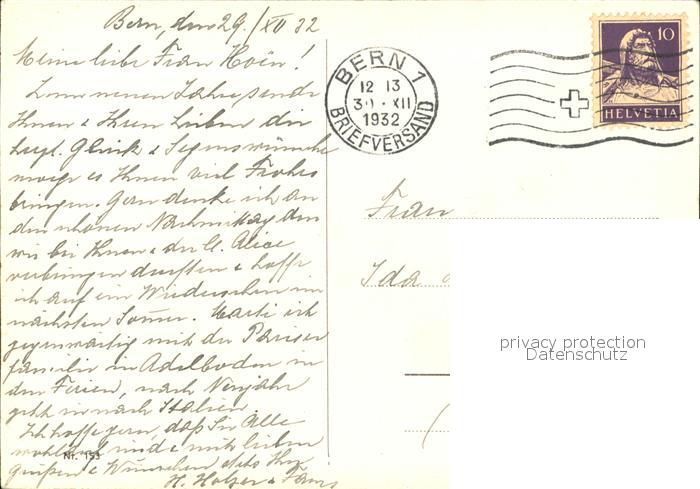 Bern, den 29./XII 32
Meine liebe Frau
Zum neuen Jahre sende
Ihnen & Ihren Lieben die
herzl. Glück & Segenswünsche
möge es Ihnen viel Frohes
bringen. Gern denke ich an
den schönen Nachmittag den
wir bei Ihnen & der Alice
verbringen durften & hoffe
ich auf ein Wiedersehen im
nächsten Sommer. ich
gegenwärtig mit der Pariser
familie in Adelboden in
den Ferien, nach Neujahr
geht in nach Italien.
Ich hoffe gern, daß Sie Alle
wohlauf sind & mit lieben
Grüßen & Wünschen stets Ihr
H. &
Nr. 153
BERN 1
12 13
30. XII
1932
BRIEFVERSAND
10
HELVETIA
Frau
Ida
privacy protection
Datenschutz